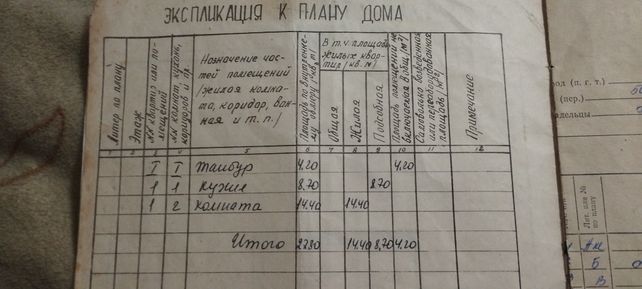 ЭКСПЛИКАЦИЯ К ПЛАНУ ДОМА
Литер по плану
Этаж
№№ квартир или помещений
№№ комнат, кухонь, коридоров и пр.
Назначение час-
тей помещений
/жилая комна-
та, коридор, ван-
ная и т. п./
Площадь по внутреннему обмеру (кв. м)
В т. ч. площадь
жилых квар-
тир /кв. м/
Общая
Жилая
Подсобная
Площадь помещений не включаемая в общ. (м²)
Самовольно возведенная или переоборудованная площадь /м²/
Примечание
1 2 3 4 5 6 7 8 9 10 11 12
I I Тамбур 4.20 4.20
1 1 Кухня 8.70 8.70
1 2 комната 14.40 14.40
Итого 27.30 14.40 8,70 4.20
род (п. г. т.)
(пер.)
адельцы
Лит. или №
по плану
Б
В